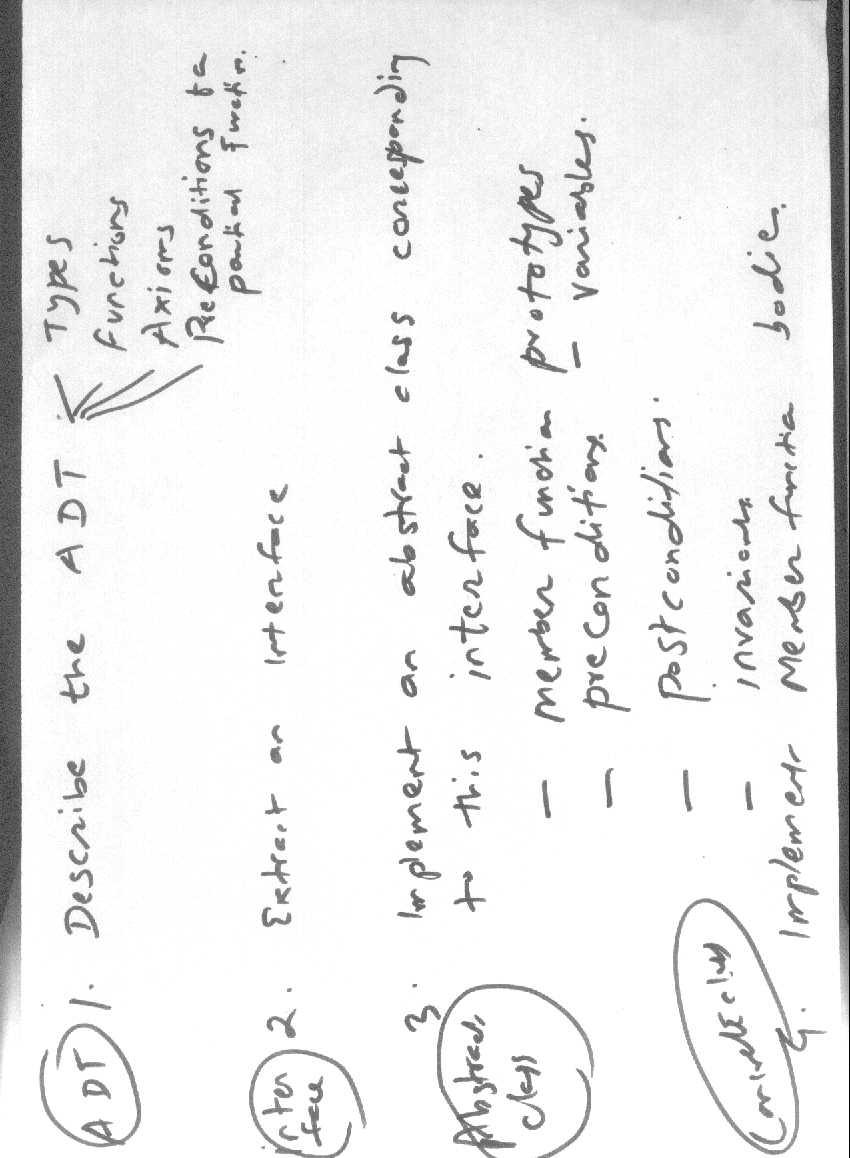 ADT 1. Describe the ADT
Types
Functions
Axioms
PreConditions for a
partial Function.
inter
face
2. Extract an interface
Abstract
class
3. Implement an abstract class corresponding
to this interface.
- member function prototypes
- preConditions. - variables.
- postconditions.
- invariants.
Concrete class
4. Implement Member function bodie.